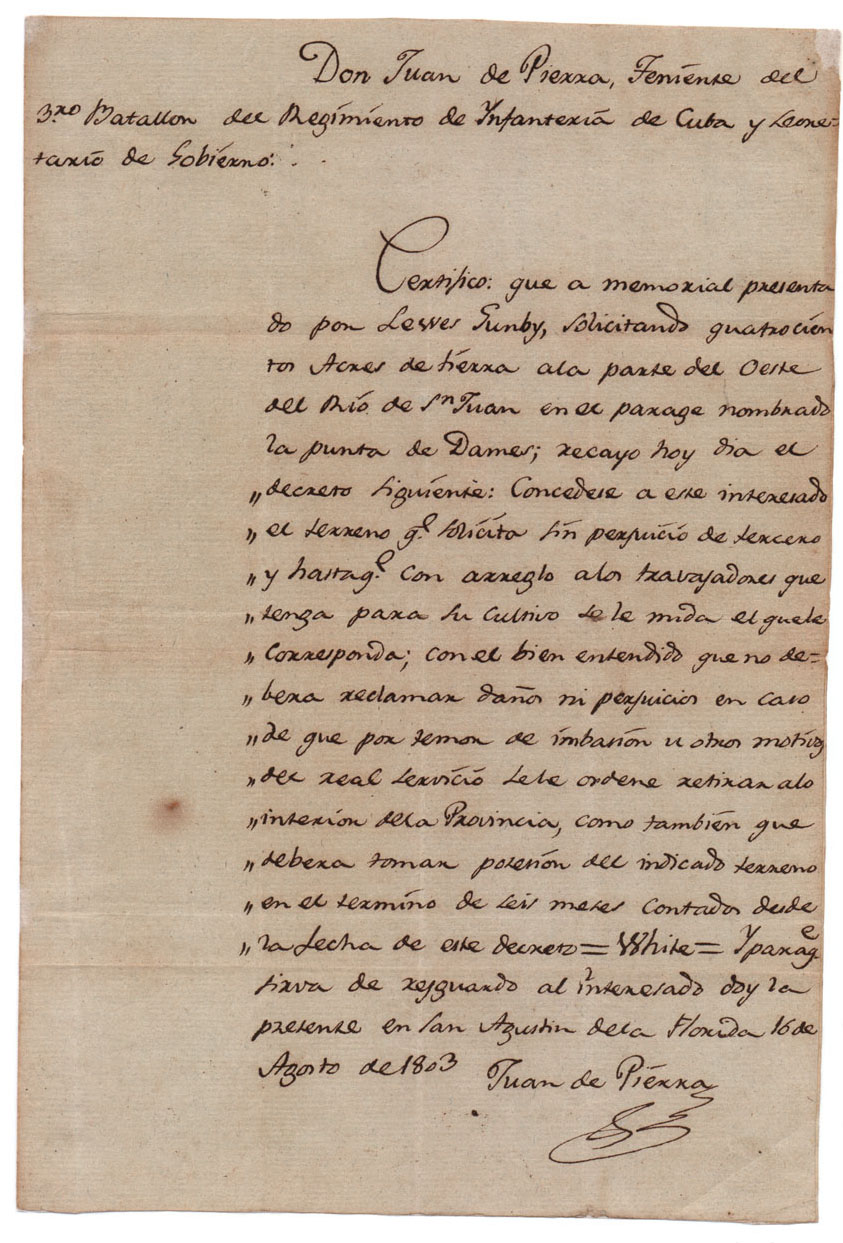 Don Juan de Pierra, Teniente del
3.ro Batallon del Regimiento de Ynfanteria de Cuba y Secre=
tario de Gobierno:
Certifico: que a memorial presenta
do por Lewes Gunby, solicitando quatrocien
tos Acres de tierra ala parte del Oeste
del Rio de Sn Juan en el parage nombrado
la punta de Dames; recayo hoy dia el
„ decreto siguiente: Concedese a este interesado
„ el terreno q.e solicita sin perjuicio de tercero
„ y hasta q.e con arreglo alos travajadores que
„ tenga para su cultivo se le mida el quele
„ corresponda; con el bien entendido que no de=
„ bera reclamar daños ni perjuicios en caso
„ de que por temor de imbasion u otros motivos
„ del real servicio sele ordene retirar alo
„ interior dela Provincia, como tambien que
„ debera tomar posesion del indicado terreno
„ en el termino de seis meses contados desde
„ la fecha de este decreto = White = Y para q.e
sirva de resguardo al interesado doy la
presente en San Agustin dela Florida 16 de
Agosto de 1803
Juan de Pierra